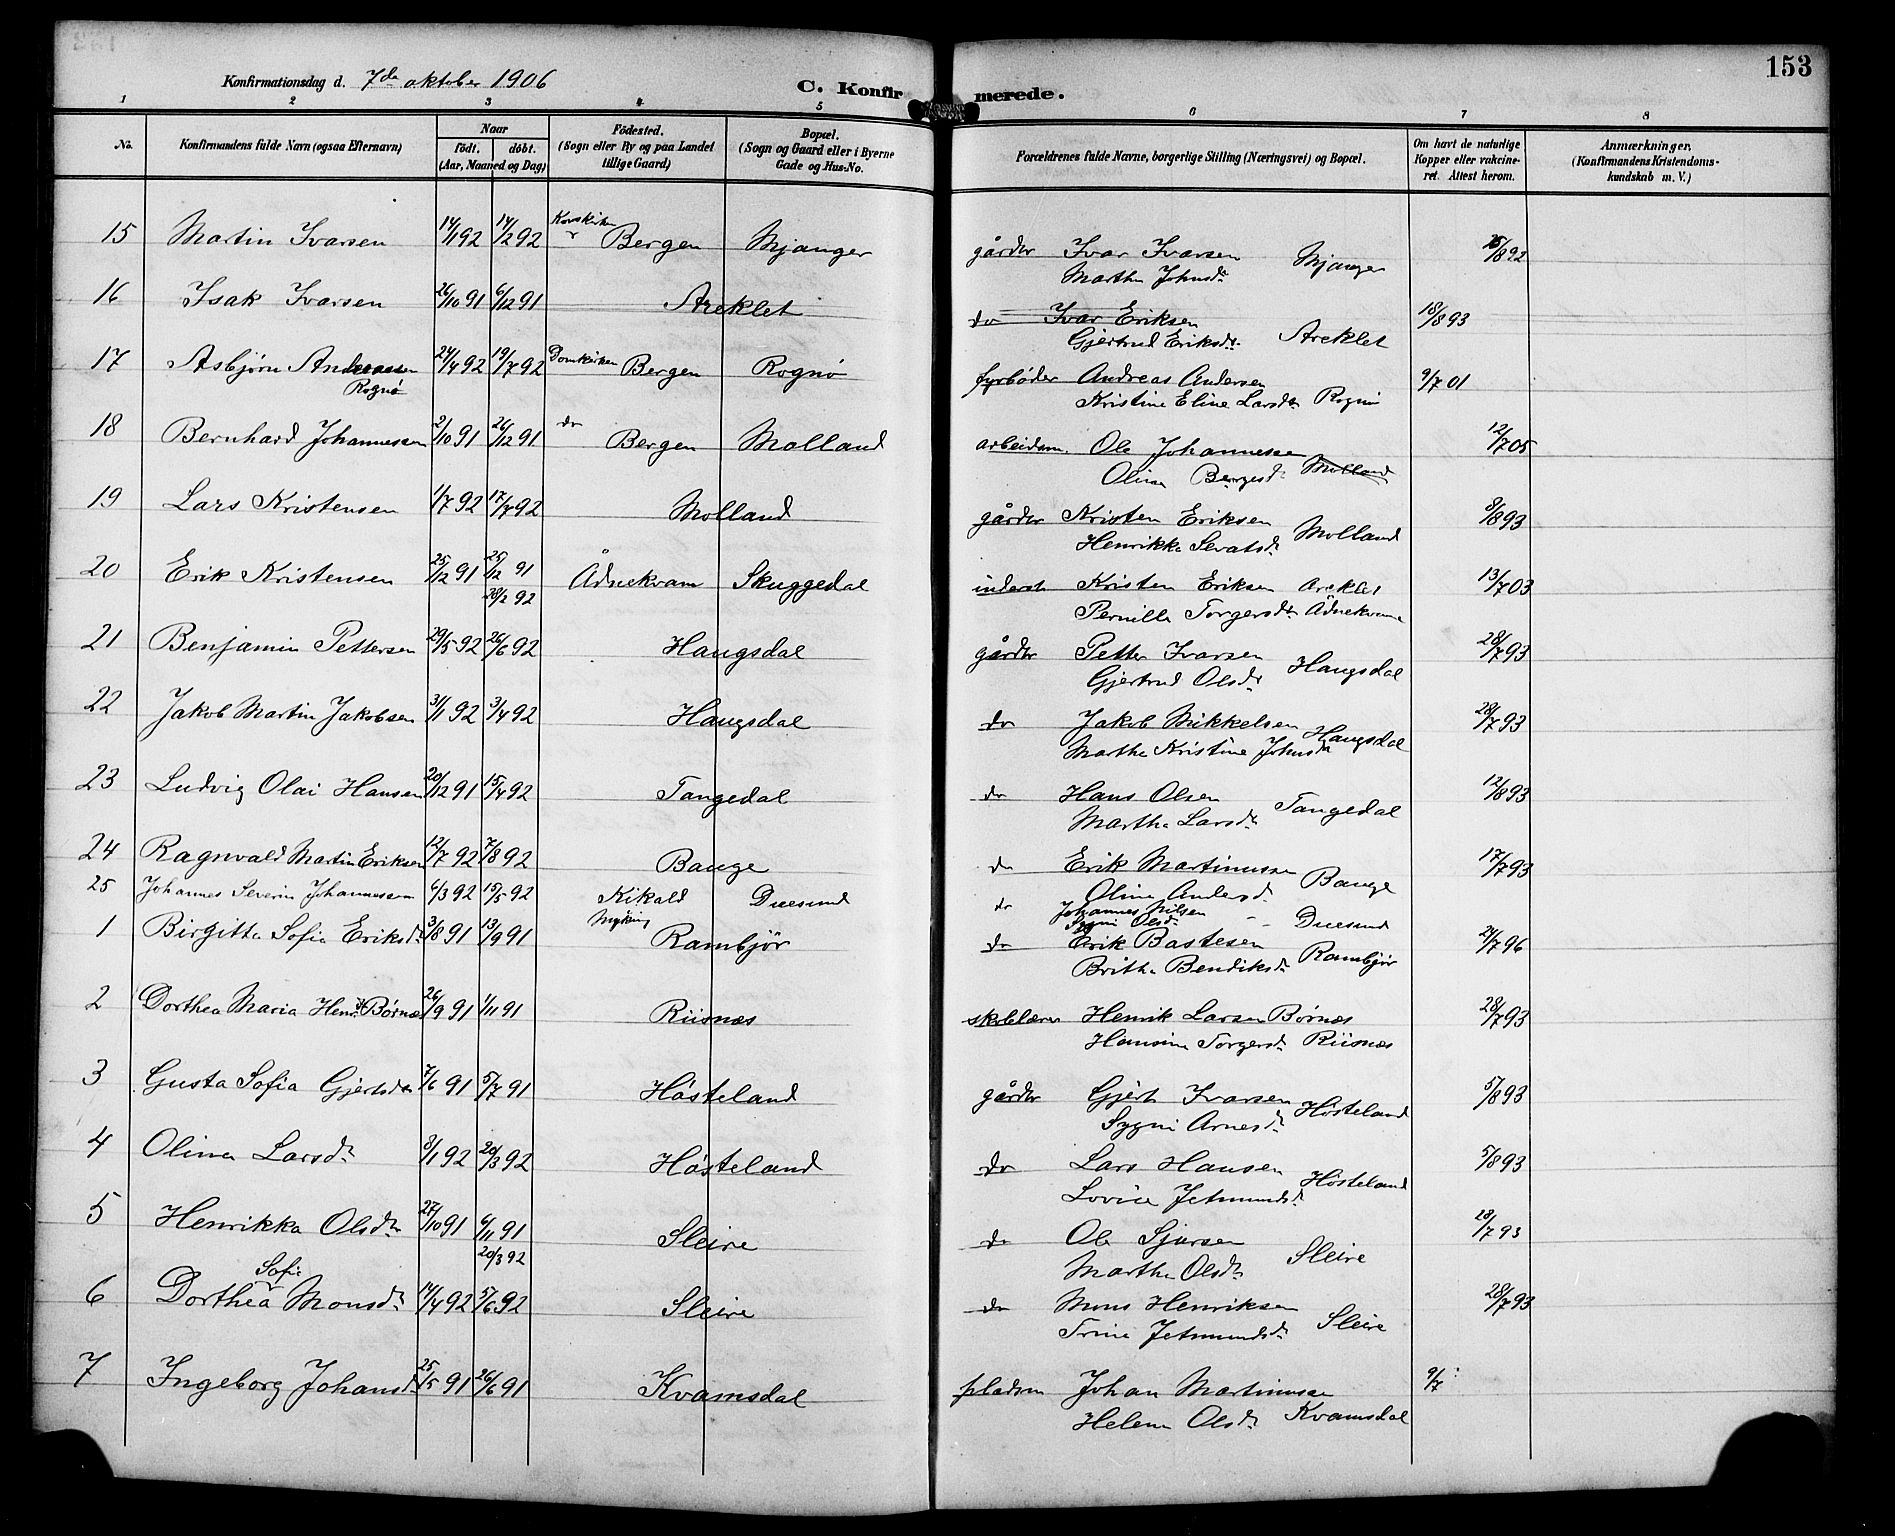 153
Konfirmationsdag d. 7de oktober 1906
C. Konfirmerede.
1 2 3 4 5 6 7 8
No.
Konfirmandens fulde Navn (ogsaa Efternavn)
Naar
födt. döbt.
(Aar, Maaned og Dag)
Födested.
(Sogn eller By og paa Landet
tillige Gaard)
Bopæl.
(Sogn og Gaard eller i Byerne
Gade og Hus-No.
Forældrenes fulde Navne, borgerlige Stilling (Næringsvei) og Bopæl.
Om havt de naturlige
Kopper eller vakcine-
ret. Attest herom.
Anmærkninger.
(Konfirmandens Kristendoms-
kundskab m. V.)
15 Martin Ivarsen 14/1 92 14/2 92 Korskirken Bergen Mjanger gårdbr Ivar Ivarsen Mjanger 25/8 92
Martha Johnsdr
16 Isak Ivarsen 26/10 91 6/12 91 Areklet do Ivar Eriksen 18/8 93
Gjertrud Eriksdr. Areklet
17 Asbjørn Andreassen 24/4 92 19/7 92 Domkirken Bergen Rognø fyrbøder Andreas Andersen 9/7 01
Rognø Kristine Eline Larsdtr Rognø
18 Bernhard Johannessen 2/10 91 26/12 91 do Bergen Molland arbeidsm. Ole Johannessen 12/7 05
Olina Børgesd. Molland
19 Lars Kristensen 1/7 92 17/7 92 Molland gårdbr Kristen Eriksen Molland 8/8 93
Henrikka Sevatsdr
20 Erik Kristensen 25/12 91 25/12 91 Ådnekvam Skuggedal inderst Kristen Eriksen Areklet 13/7 03
28/2 92 Pernille Torgersdtr Ådnekvam
21 Benjamin Pettersen 29/5 92 26/6 92 Haugsdal gårdbr Petter Ivarsen Haugsdal 28/7 93
Gjertrud Olsdr
22 Jakob Martin Jakobsen 3/1 92 3/4 92 Haugsdal do Jakob Mikkelsen Haugsdal 28/7 93
Martha Kristine Johnsdr
23 Ludvig Olai Hansen 20/12 91 15/4 92 Tangedal do Hans Olsen Tangedal 12/8 93
Martha Larsdr
24 Ragnvald Martin Eriksen 12/7 92 7/8 92 Bauge do Erik Martinussen Bauge 17/7 93
Olina Andersdr
25 Johannes Severin Johannessen 6/3 92 15/5 92 Kikald Duesund do Johannes Nilsen Duesund
Myking Sygni Olsdr
1 Birgitta Sofia Eriksdr 3/8 91 13/9 91 Rambjør do Erik Bastesen Rambjør 24/7 96
Britha Bendiksdr
2 Dorthea Maria Henr.dr Børnæs 26/9 91 1/11 91 Riisnæs skolelærer Henrik Larsen Børnæs 28/7 93
Hansine Torgersdr Riisnæs
3 Gusta Sofia Gjertsdtr 7/6 91 5/7 91 Hósteland gårdbr Gjert Ivarsen Hósteland 5/8 93
Sygni Arnesdr
4 Olina Larsdr 8/1 92 20/3 92 Hósteland do Lars Hansen Hósteland 5/8 93
Lovise Jetmundsdr
5 Henrikka Olsdtr 27/10 91 6/11 91 Sleire do Ole Sjursen Sleire 28/7 93
20/3 92 Martha Olsdr
6 Dorthea Sofie Monsdr 14/4 92 5/6 92 Sleire do Mons Henriksen Sleire 28/7 93
Trine Jetmundsdr
7 Ingeborg Johansdr 25/5 91 26/6 91 Kvamsdal pladsm Johan Martinussen 9/7
Helene Olsdr Kvamsdal